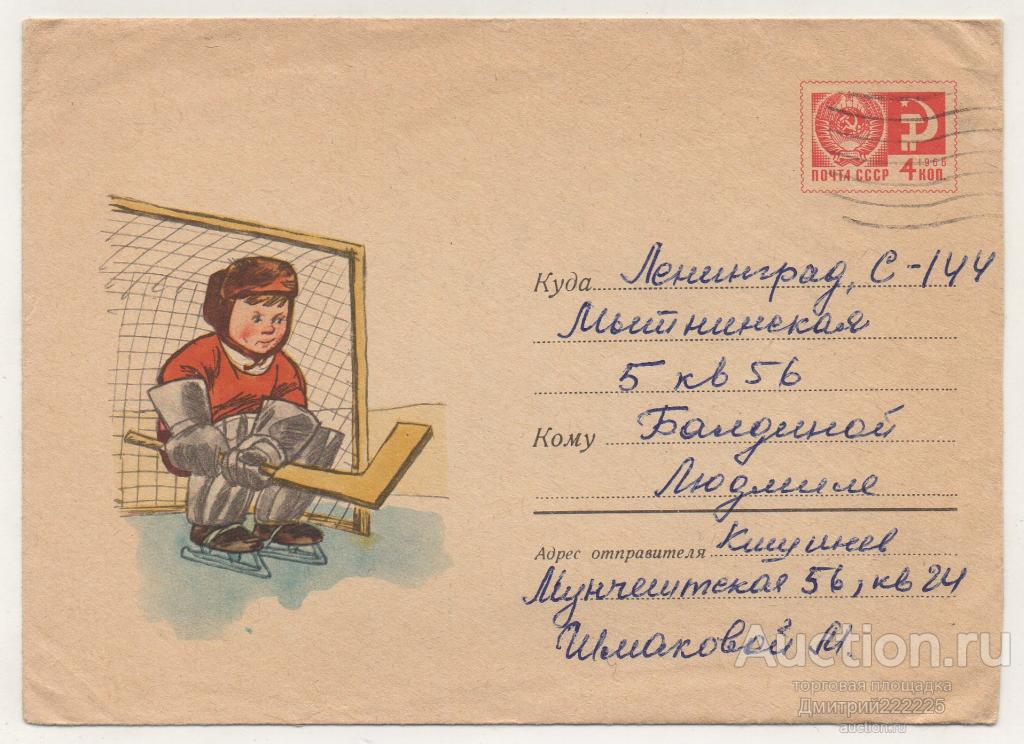 ПОЧТА СССР 4 1966 КОП.
Куда Ленинград, С-144
Мытнинская
5 кв 56
Кому Балдиной
Людмиле
Адрес отправителя Кишинев
Мунчештская 56, кв 24
Шмаковой М.
Auction.ru
торговая площадка
Дмитрий222225
auction.ru